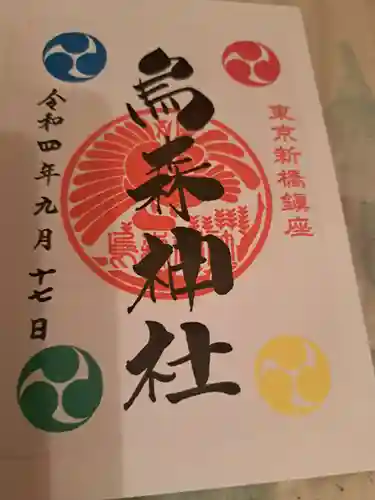 東京新橋鎮座
烏森神社
令和四年九月十七日